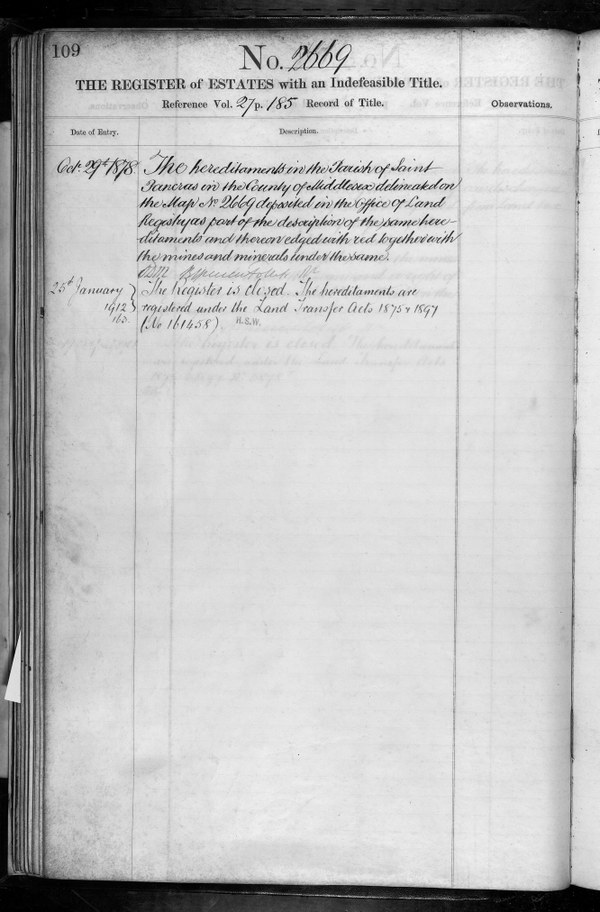 109
No. 2669
THE REGISTER of ESTATES with an Indefeasible Title.
Reference Vol. 27 p. 185 Record of Title.
Observations.
Date of Entry.
Description.
Oct. 29th 1878
The hereditaments in the Parish of Saint
Pancras in the County of Middlesex delineated on
the Map No. 2669 deposited in the Office of Land
Registry as part of the description of the same here-
ditaments and thereon edged with red together with
the mines and minerals under the same.
25th January
1912
The Register is closed. The hereditaments are
registered under the Land Transfer Acts 1875 & 1897
(No 161458)